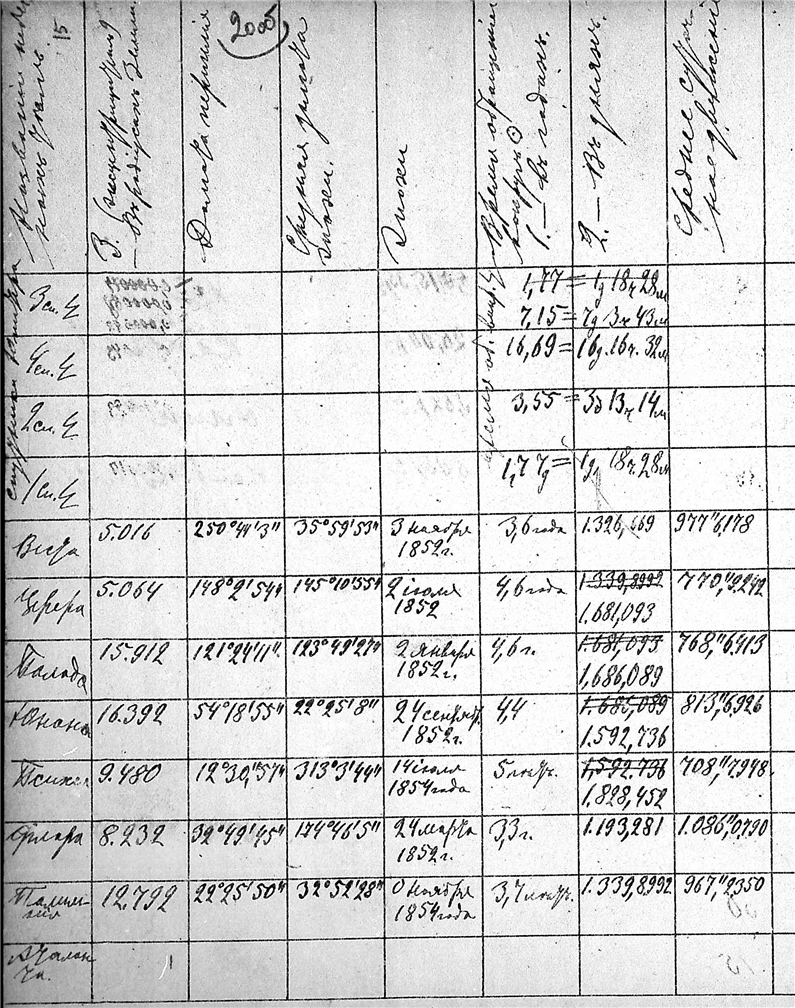 2000
15
Название
3. Эксцентрицитет
— Въ радіусахъ Земли
Долгота перигелія
Средняя долгота
эпохи.
Эпохи
Время обращенія
вокругъ ☉
1. — Въ годахъ.
2. — Въ дняхъ.
Среднее суточ-
ное движеніе
спутники Юпитера
3 сп. ♃ 1,77 = 1д 18ч 28м
7,15 = 7д 3ч 43м
4 сп. ♃ 16,69 = 16д. 16ч. 32м
2 сп. ♃ 3,55 = 3д 13ч 14м
1 сп. ♃ 1,77д = 1д 18ч 28м
Веста 5.016 250°41'3" 35°59'53" 3 ноября 3,6 года 1.326,669 977"6178
1852 г.
Церера 5.064 148°2'54" 145°10'55" 2 іюля 4,6 года 1.339,8992 770,"9242
1852 1.681,093
Палада 15.912 121°24'11" 123°49'27" 2 января 4,6 г. 1.681,093 768,"6413
1852 г. 1,686,089
Юнона 16.392 54°18'55" 22°25'8" 24 сентяб. 4,4 1.686,089 813"6926
1852 г. 1.592,736
Психея 9.480 12°30'57" 313°3'44" 14 іюля 5 1,592.736 708,"7948.
1854 года 1.828,452
Флора 8.232 32°49'45" 174°46'5" 24 марта 3,3 г. 1.193,281 1.086,"0790
1852 г.
12.792 22°25'50" 32°52'28" 0 ноября 3,7 1.339,8992 967,"2350
1854 года